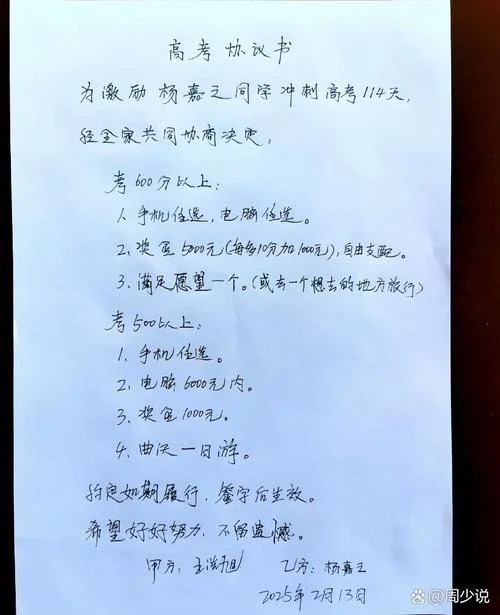 高考协议书
为激励杨嘉之同学冲刺高考114天,
经全家共同协商决定:
考600分以上:
1、手机任选,电脑任选。
2、奖金5000元(每多10分加1000元),自由支配。
3、满足愿望一个。(或去一个想去的地方旅行)
考500以上:
1、手机任选。
2、电脑6000元内。
3、奖金1000元。
4、曲沃一日游。
约定如期履行,签字后生效。
希望好好努力,不留遗憾。
甲方: 乙方:杨嘉之
2025年2月13日
@周少说